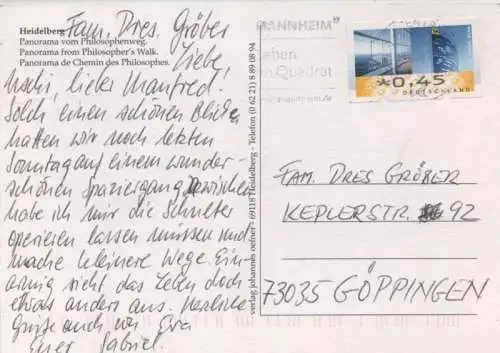 Heidelberg
Panorama vom Philosophenweg.
Panorama from Philosopher's Walk.
Panorama de Chemin des Philosophes.
Fam. Dres. Gröber
Liebe
Uschi, lieber Manfred!
Solch einen schönen Blick
hatten wir noch letzten
Sonntag auf einem wunder-
schönen Spaziergang. Inzwischen
habe ich mir die Schulter
operieren lassen müssen und
mache kleinere Wege. Ein-
armig sieht das Leben doch
etwas anders aus. Herzliche
Grüße auch von
Euer Gabriel.
verlag johannes oefner • 69118 Heidelberg - Telefon (0 62 21) 8 89 08 94
MANNHEIM"
Leben
im Quadrat
0,45
DEUTSCHLAND
FAM. DRES GRÖBER
KEPLERSTR. 92
73035 GÖPPINGEN